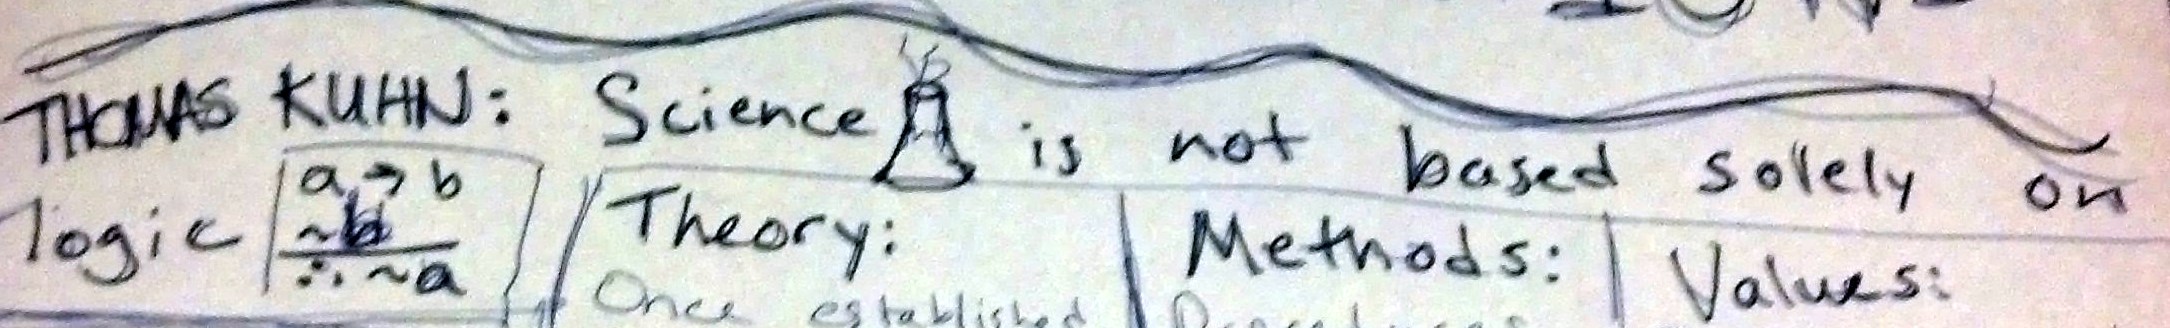 THOMAS KUHN: Science is not based solely on
logic
a → b
~b
∴ ~a
Theory:
Once established
Methods:
Values: